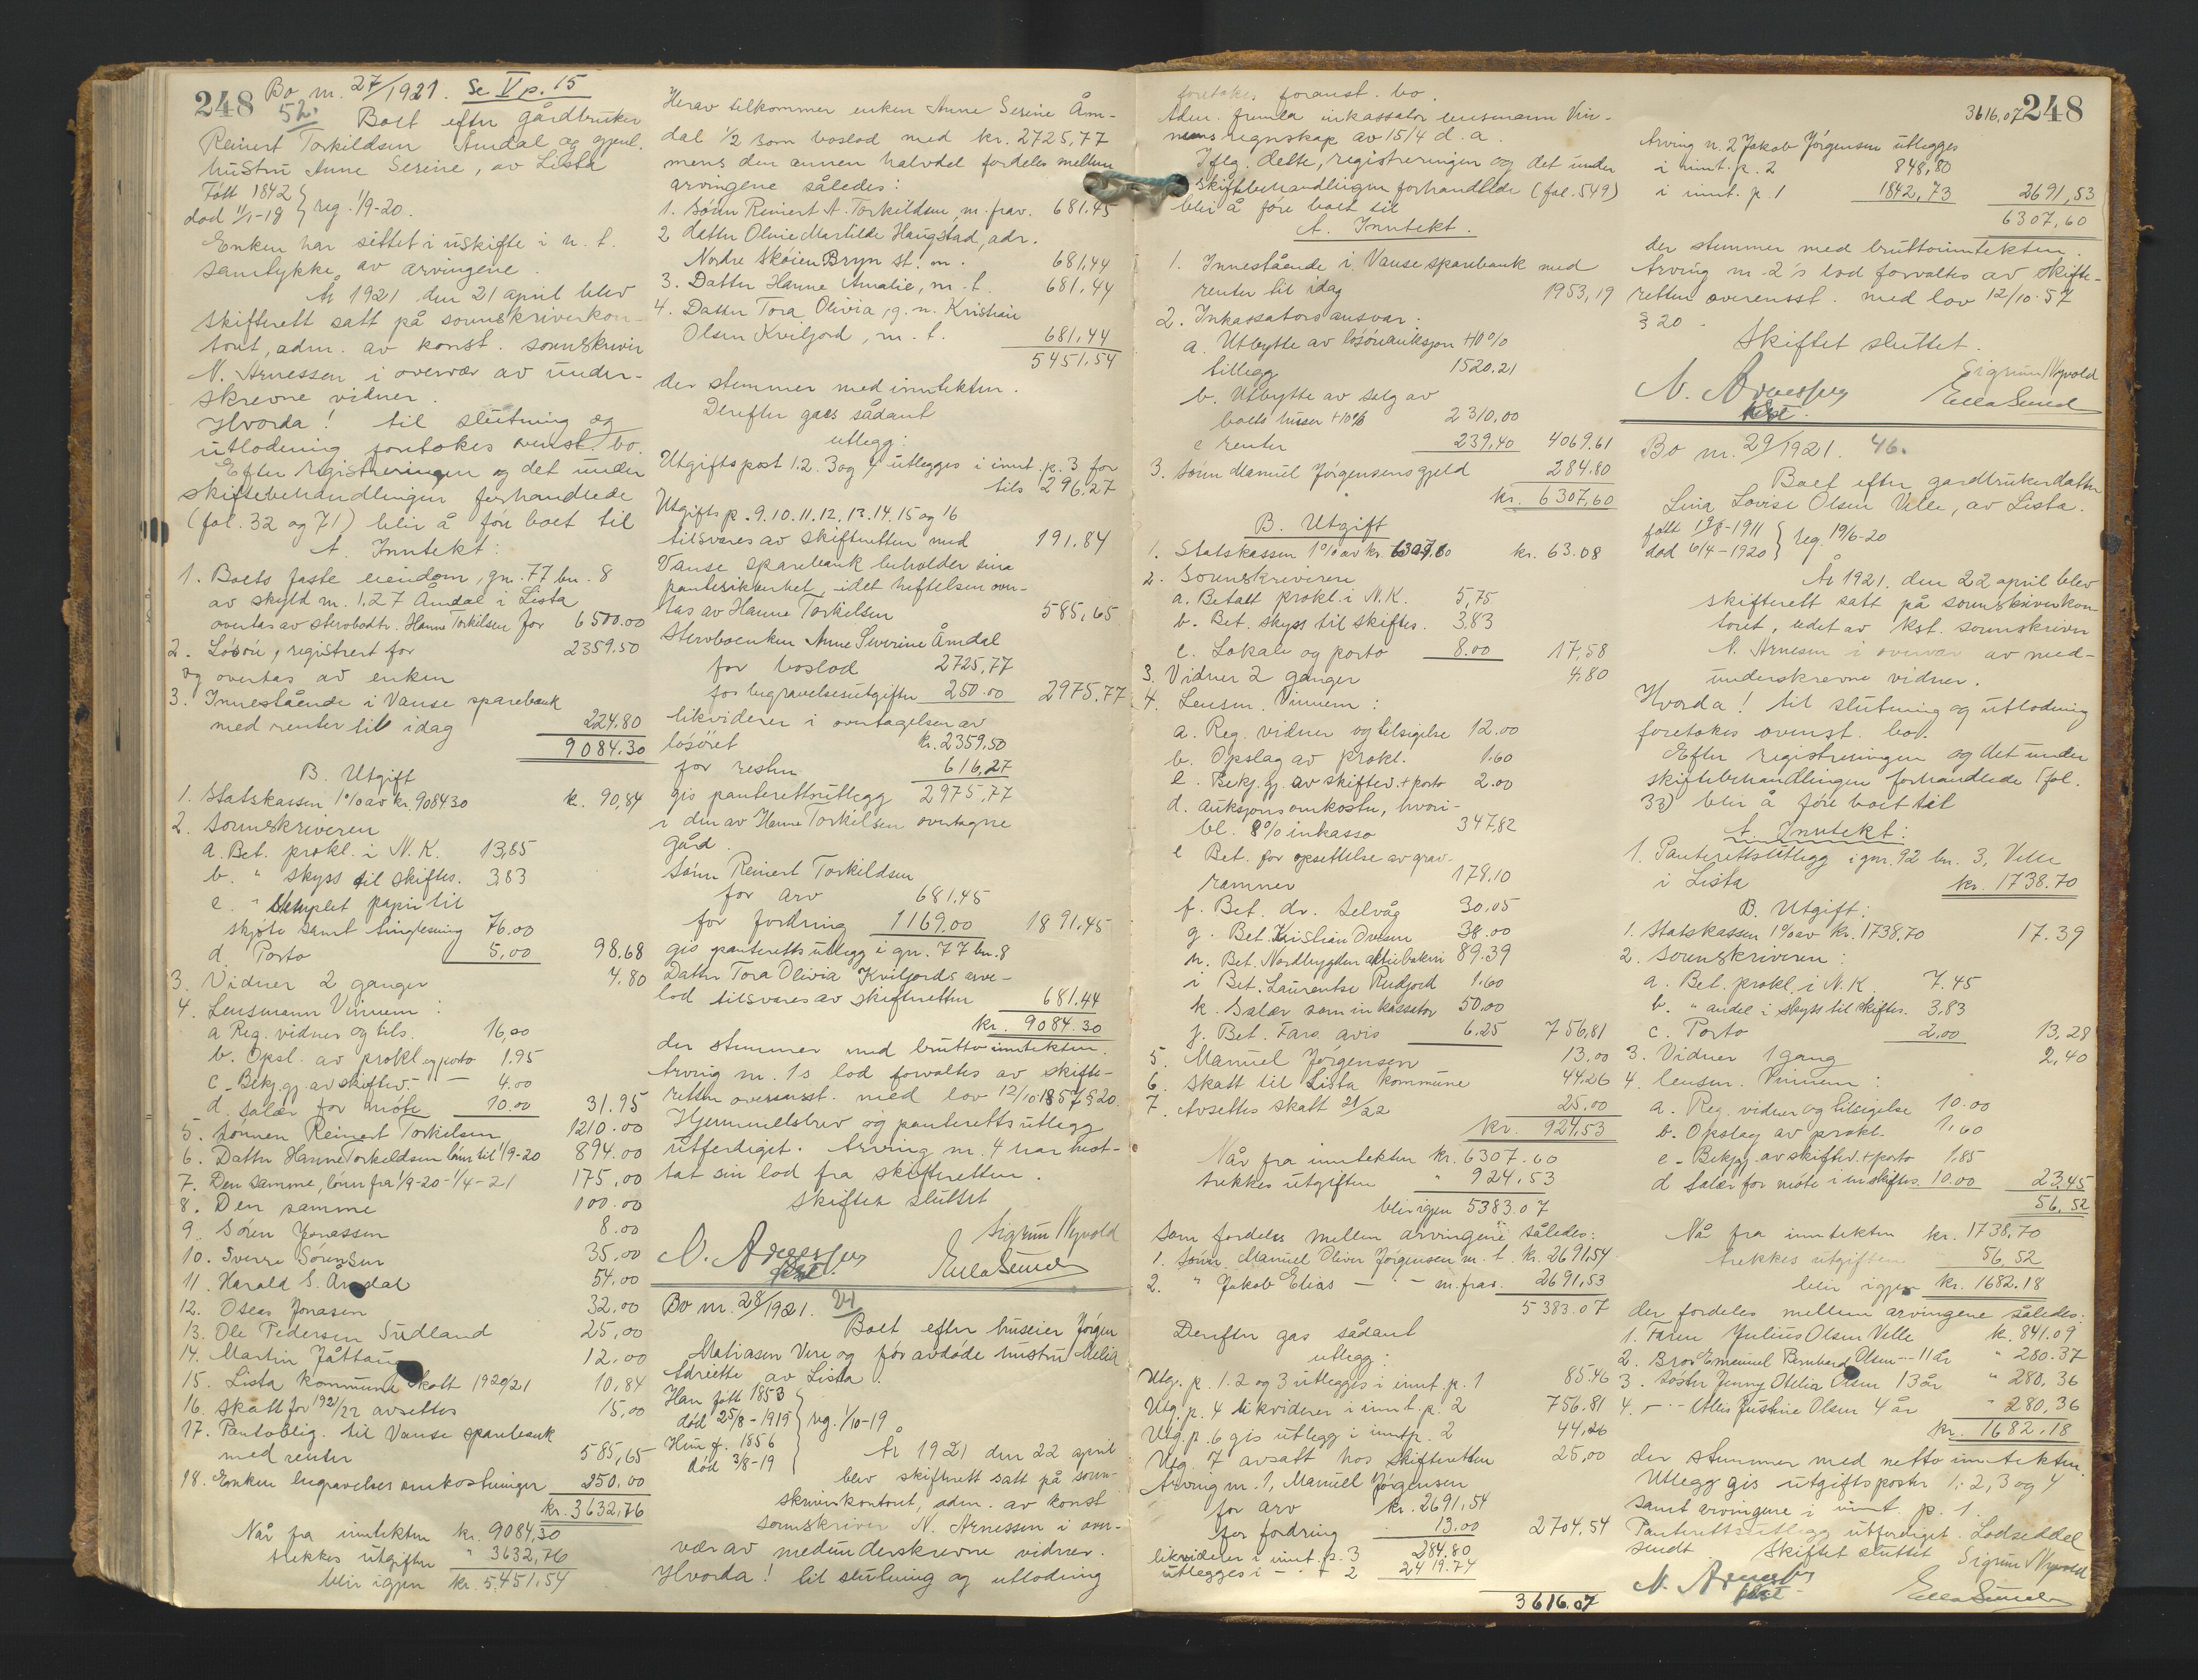 248 Bo nr. 27/1921. Se V p. 15
52.
Boet efter gårdbruker
Reinert Torkildsen Åmdal og gjenl.
hustru Anne Serine, av Lista
Født 1842
død 11/1-19 } reg. 1/9-20.
Enken har sittet i uskifte i h. t.
samtykke av arvingene.
År 1921 den 21 april blev
skifterett satt på sorenskriverkon-
toret, adm. av konst. sorenskriver
N. Arnessen i overvær av under-
skrevne vidner.
Hvorda! til slutning og
utlodning foretokes ovenst. bo.
Efter registreringen og det under
skiftebehandlingen forhandlede
(fol. 32 og 71) blir å føre boet til
A. Inntekt:
1. Boets faste eiendom, gn. 77 bn. 8
av skyld m. 1,27 Åmdal i Lista
overtas av stervbodtr. Hanne Torkilsen for 6500.00
2. Løsøre, registrert for 2359.50
og overtas av enken
3. Innestående i Vanse sparebank
med renter til idag 224.80
9084.30
B. Utgift
1. Statskassen 1% av kr. 9084 30 kr. 90,84
2. Sorenskriveren
a. Bet. prokl. i N. K. 13,85
b. " skyss til skiftes. 3,83
c. " stemplet papir til
skjøte samt tinglesning 76.00
d. Porto 5,00 98.68
3. Vidner 2 ganger 4.80
4. Lensmann Vinnem:
a. Reg. vidner og tils. 16,00
b. Opsl. av prokl. og porto 1.95
c. Bekj.gj. av skiftev. - 4.00
d. Salær for møte 10.00 31.95
5. Sønnen Reinert Torkilsen 1210.00
6. Datter Hanne Torkeldsen lønn til 1/9-20 894.00
7. Den samme, lønn fra 1/9-20 - 1/4-21 175,00
8. Den samme 100.00
9. Søren Jonassen 8.00
10. Sverre Sørensen 35,00
11. Harald S. Åmdal 54,00
12. Oseas Jonasen 32.00
13. Ole Pedersen Sudland 25,00
14. Martin Jåttaug 12.00
15. Lista kommune skatt 1920/21 10,84
16. Skatt for 1921/22 avsettes 15,00
17. Pantoblig. til Vanse sparebank
med renter 585,65
18. Enken begravelses omkostninger 250,00
kr. 3632,76
Når fra inntekten kr. 9084,30
trekkes utgiften " 3632,76
blir igjen kr. 5.451,54
Herav tilkommer enken Anne Serine Åm-
dal 1/2 som boslod med kr. 2725,77
mens den annen halvdel fordeles mellem
arvingene således:
1. Sønn Reinert A. Torkildsen, m. frav. 681,45
2. datter Olivie Martilde Haugstad, adr.
Nordre Skøien Bryn st. m. 681,44
3. Datter Hanne Amalie, m. t. 681,44
4. Datter Tora Olivia, g. n. Kristian
Olsen Kviljord, m. t. 681,44
5451,54
der stemmer med inntekten.
Derefter gaes sådant
utlegg:
Utgiftspost 1. 2. 3 og 4 utlegges i innt. p. 3 for
tils 296,27
Utgifts p. 9. 10. 11. 12. 13. 14. 15 og 16
tilsvares av skifteretten med 191.84
Vanse sparebank beholder sin
pantesikkerhet, idet heftelsen over-
tas av Hanne Torkilsen 585,65
Stervboenken Anne Severine Åmdal
for boslod 2725,77
for begravelsesutgifter 250.00 2975.77
likviderer i overtagelsen av
løsøret kr. 2359,50
for resten 616,27
gis panterettsutlegg 2975,77
i den av Hanne Torkilsen overtagne
gård.
Sønn Reinert Torkildsen
for arv 681,45
for fordring 1169,00 1891.45
gis panteretts utlegg i gn. 77 bn. 8
Datter Tora Olivia Kviljords arve-
lod tilsvares av skifteretten 681.44
kr. 9084.30
der stemmer med bruttoinntekten.
Arving nr. 1s lod forvaltes av skifte-
retten overensst. med lov 12/10 1857 § 20.
Hjemmelsbrev og panterettsutlegg
utferdiget. Arving nr. 4 har mot-
tat sin lod fra skifteretten.
Skiftet sluttet
Sigrun Nyvold
N. Arnessen
kst.
Ella Sund
Bo nr. 28/1921. 21
Boet efter huseier Jørgen
Matiasen Vere og før avdøde hustru Melia
Adriette av Lista.
Han født 1853
død 25/8-1919 } reg. 1/10-19
Hun f. 1856
død 3/8-19
År 1921 den 22 april
blev skifterett satt på soren-
skriverkontoret, adm. av konst
sorenskriver N. Arnessen i over-
vær av medunderskrevne vidner.
Hvorda! til slutning og utlodning
foretokes foranst. bo.
Adm. fremla inkassator lensmann Vin-
nems regnskap av 15/4 d. a.
Iflg. dette, registreringen og det under
skiftebehandlingen forhandlede (fol. 549)
blir å føre boet til
A. Inntekt.
1. Innestående i Vanse sparebank med
renter til idag 1953,19
2. Inkassators ansvar:
a. Utbytte av løsøreauksjon + 10%
tillegg 1520.21
b. Utbytte av salg av
boets huser + 10% 2310,00
c renter 239,40 4069.61
3. Sønn Manuel Jørgensens gjeld 284.80
kr. 6307,60
B. Utgift
1. Statskassen 1% av kr. 6307.60 kr. 63.08
2. Sorenskriveren
a. Betalt prokl. i N. K. 5,75
b. Bet. skyss til skiftes. 3,83
c. Lokale og porto 8.00 17,58
3. Vidner 2 ganger 4,80
4. Lensm. Vinnem:
a. Reg. vidner og tilsigelse 12.00
b. Opslag av prokl. 1.60
c. Bekj. gj. av skiftev. + porto 2.00
d. auksjonsomkostn., hvori-
bl. 8% inkasso 347,82
e Bet. for opsettelse av grav-
rammer 178.10
f. Bet. dr. Selvåg 30,05
g. Bet. Kristian Ovesen 38.00
h. Bet. Nordbygden aktiebakeri 89.39
i Bet. Laurentse Rudjord 1.60
k. Salær som inkassator 50.00
j. Bet. Fars. avis 6.25 756,81
5. Manuel Jørgensen 13.00
6. Skatt til Lista kommune 44,26
7. Avsettes skatt 21/22 25,00
kr. 924,53
Når fra inntekten kr. 6307.60
trekkes utgiften " 924,53
blir igjen 5383.07
som fordeles mellem arvingene således:
1. Sønn Manuel Oliver Jørgensen m. t. kr. 2691,54
2. " Jakob Elias - " - m. frav. 2691,53
5383.07
Derefter gas sådant
utlegg:
Utg. p. 1. 2 og 3 utlegges i innt. p. 1 85.46
Utg. p. 4 likviderer i innt. p. 2 756.81
Utg. p. 6 gis utlegg i innt p. 2 44,26
Utg. 7 avsatt hos skifteretten 25,00
Arving nr. 1, Manuel Jørgensen
for arv kr. 2691,54
for fordring 13.00 2704,54
likviderer i innt. p. 3 284.80
utlegges i - " - 2 2419.74
3616.07
3616.07 248
Arving nr. 2 Jakob Jörgensen utlegges
i innt. p. 2 848,80
i innt. p. 1 1842,73 2691,53
6307,60
der stemmer med bruttoinntekten.
Arving nr. 2's lod forvaltes av skifte-
retten overensst. med lov 12/10-57
§ 20.
Skiftet sluttet.
Sigrun Nyvold
N. Arnessen
kst.
Ella Sund
Bo nr. 29/1921. 46.
Boet efter gardbrukerdatter
Lina Lovise Olsen Velle, av Lista.
født 19/8-1911
død 6/4-1920 } reg. 19/6-20
År 1921, den 22 april blev
skifterett satt på sorenskriverkon
toret, ledet av kst. sorenskriver
N. Arnesen i overvær av med-
underskrevne vidner.
Hvorda! til slutning og utlodning
foretokes ovenst. bo.
Efter registreringen og det under
skiftebehandlingen forhandlede (fol.
33) blir å føre boet til
A. Inntekt:
1. Panterettsutlegg i gnr. 92 bn. 3, Velle
i Lista kr. 1738.70
B. Utgift:
1. Statskassen 1% av kr. 1738,70 17.39
2. Sorenskriveren:
a. Bet. prokl. i N. K. 7.45
b. " andel i skyss til skiftes. 3,83
c. Porto 2,00 13,28
3. Vidner 1 gang 2,40
4. lensm. Vinnem:
a. Reg. vidner og tilsigelse 10.00
b. Opslag av prokl. 1,60
c. Bekjgj. av skiftev. + porto 1.85
d Salær for møte i in skiftes. 10.00 23,45
56,52
Når fra inntekten kr. 1738,70
trekkes utgiften 56,52
blir igjen kr. 1682.18
der fordeles mellem arvingene således:
1. Faren Julius Olsen Velle kr. 841.09
2. Bror Emanuel Bernhard Olsen - 11 år " 280.37
3. Søster Jenny Otelia Olsen 13 år " 280,36
4. - " - Allis Justine Olsen 4 år " 280,36
kr. 1682.18
der stemmer med netto inntekten.
Utlegg gis utgiftsposter 1, 2, 3 og 4
samt arvingene i innt. p. 1.
Panterettsutlegg utferdiget. Lodseddel
sendt Skiftet sluttet
Sigrun Nyvold
N. Arnessen
kst.
Ella Sund